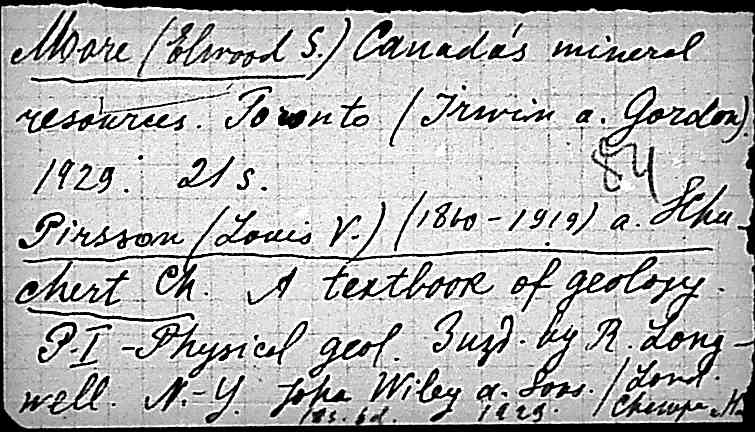 Moore (Elwood S.) Canada's mineral
resources. Toronto (Irwin a. Gordon)
1929. 21 s.
84
Pirsson (Louis V.) (1860-1919) a. Schu-
chert Ch. A textbook of geology.
P. I - Physical geol. 3 изд. by R. Long-
well. N.-Y. John Wiley a. Sons. / Lond.
18s. 6d. 1929.